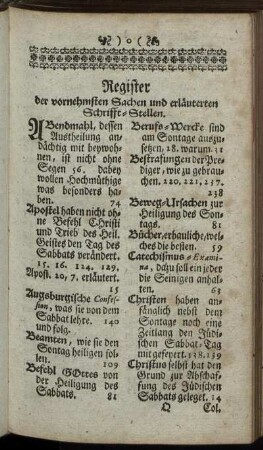 ) o (
Register
der vornehmsten Sachen und erläuterten
Schrifft-Stellen.
ABendmahl, dessen
Austheilung an-
dächtig mit beywoh-
nen, ist nicht ohne
Segen 56. dabey
wollen Hochmüthige
was besonders ha-
ben. 74
Apostel haben nicht oh-
ne Befehl CHristi
und Trieb des Heil.
Geistes den Tag des
Sabbats verändert.
15. 16. 124. 129.
Apost. 20, 7. erläutert.
15
Augspurgische Confes-
sion, was sie von dem
Sabbat lehre. 140
und folg.
Beamten, wie sie den
Sontag heiligen sol-
len. 109
Befehl GOttes von
der Heiligung des
Sabbats. 81
Berufs-Wercke sind
am Sontage auszu-
setzen, 28. warum. 31
Bestrafungen der Pre-
diger, wie zu gebrau-
chen. 220, 221, 257.
Beweg-Ursachen zur
Heiligung des Son-
tags. 81
Bücher, erbauliche, wel-
ches die besten. 59
Catechismus-Exami-
na, dazu soll ein jeder
die Seinigen anhal-
ten. 63
Christen haben an-
fänglich nebst dem
Sontage noch eine
Zeitlang den Jüdi-
schen Sabbat-Tag
mit gefeyert. 138. 139
Christus selbst hat den
Grund zur Abschaf-
fung des Jüdischen
Sabbats geleget. 14
Q Col.